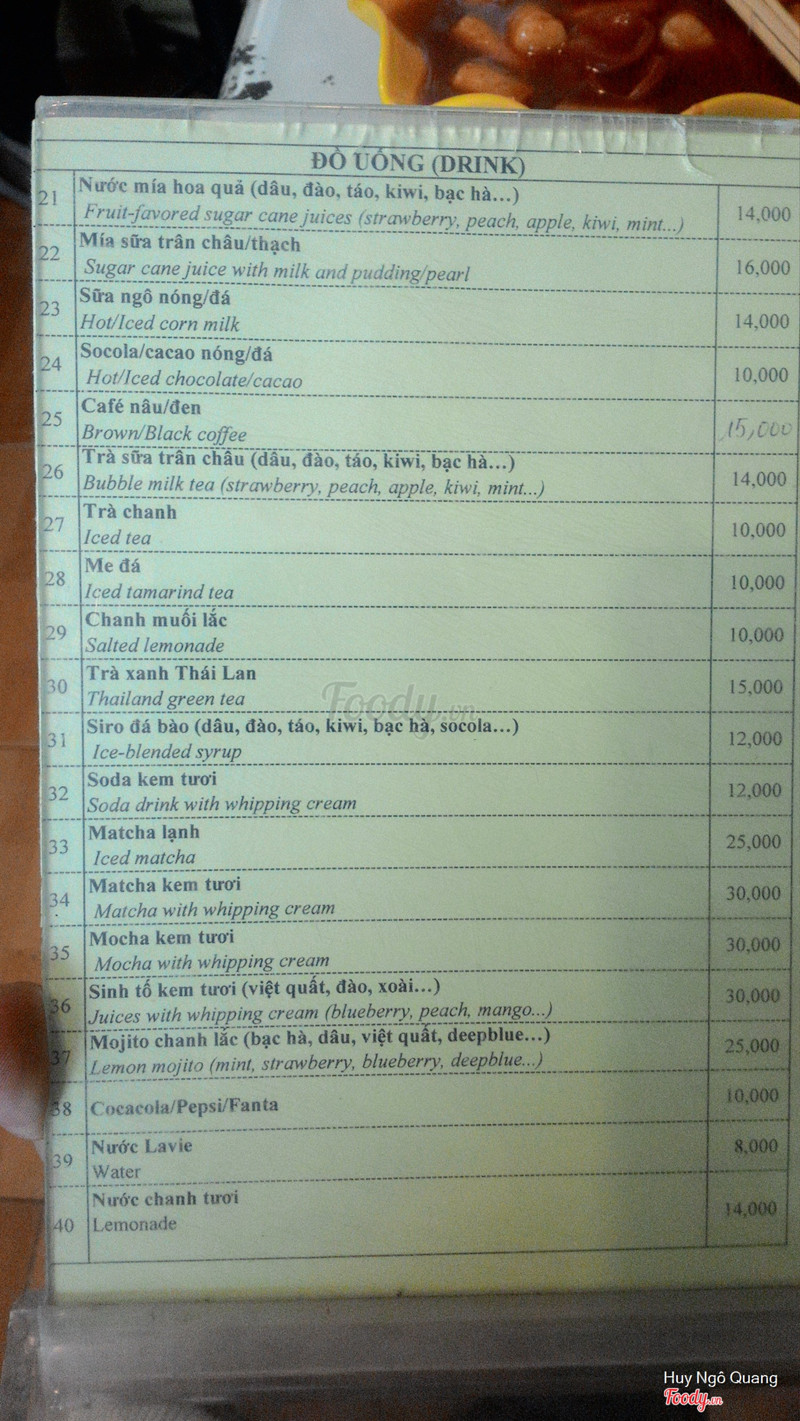 ĐỒ UỐNG (DRINK)
21 Nước mía hoa quả (dâu, đào, táo, kiwi, bạc hà...)
Fruit-favored sugar cane juices (strawberry, peach, apple, kiwi, mint...) 14,000
22 Mía sữa trân châu/thạch
Sugar cane juice with milk and pudding/pearl 16,000
23 Sữa ngô nóng/đá
Hot/Iced corn milk 14,000
24 Socola/cacao nóng/đá
Hot/Iced chocolate/cacao 10,000
25 Café nâu/đen
Brown/Black coffee 15,000
26 Trà sữa trân châu (dâu, đào, táo, kiwi, bạc hà...)
Bubble milk tea (strawberry, peach, apple, kiwi, mint...) 14,000
27 Trà chanh
Iced tea 10,000
28 Me đá
Iced tamarind tea 10,000
29 Chanh muối lắc
Salted lemonade 10,000
30 Trà xanh Thái Lan
Thailand green tea 15,000
Foody.vn
31 Siro đá bào (dâu, đào, táo, kiwi, bạc hà, socola...)
Ice-blended syrup 12,000
32 Soda kem tươi
Soda drink with whipping cream 12,000
33 Matcha lạnh
Iced matcha 25,000
34 Matcha kem tươi
Matcha with whipping cream 30,000
35 Mocha kem tươi
Mocha with whipping cream 30,000
36 Sinh tố kem tươi (việt quất, đào, xoài...)
Juices with whipping cream (blueberry, peach, mango...) 30,000
37 Mojito chanh lắc (bạc hà, dâu, việt quất, deepblue...)
Lemon mojito (mint, strawberry, blueberry, deepblue...) 25,000
38 Cocacola/Pepsi/Fanta 10,000
39 Nước Lavie
Water 8,000
40 Nước chanh tươi
Lemonade 14,000
Huy Ngô Quang
Foody.vn